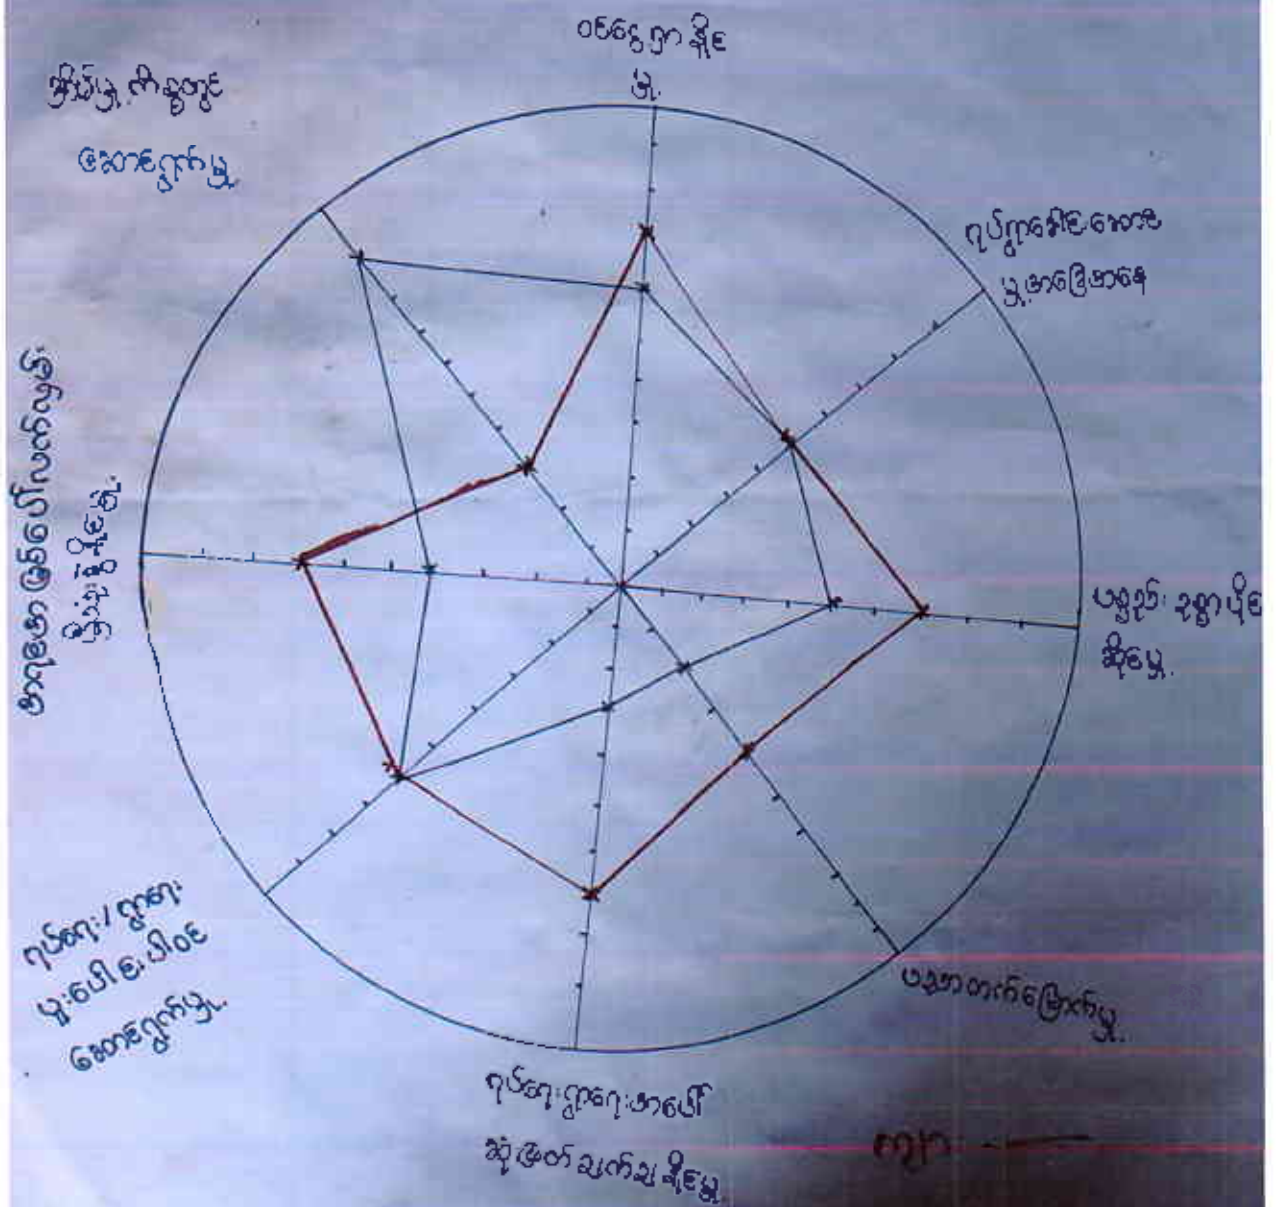 ဝင်ငွေရှာနိုင်
မှု
ရပ်ရွာခေါင်းဆောင်
မှုအခြေအနေ
ပစ္စည်းဥစ္စာပိုင်
ဆိုင်မှု
ပညာတတ်မြောက်မှု
ရပ်ရေးရွာရေးအပေါ်
ဆုံးဖြတ်ချက်ချနိုင်မှု
ရပ်ရေး/ရွာရေး
ပူးပေါင်းပါဝင်
ဆောင်ရွက်မှု
အရင်းအမြစ်ပေါ်လက်လှမ်း
မှီသုံးစွဲနိုင်မှု
အိမ်မှုကိစ္စတွင်
ဆောင်ရွက်မှု
ကျား